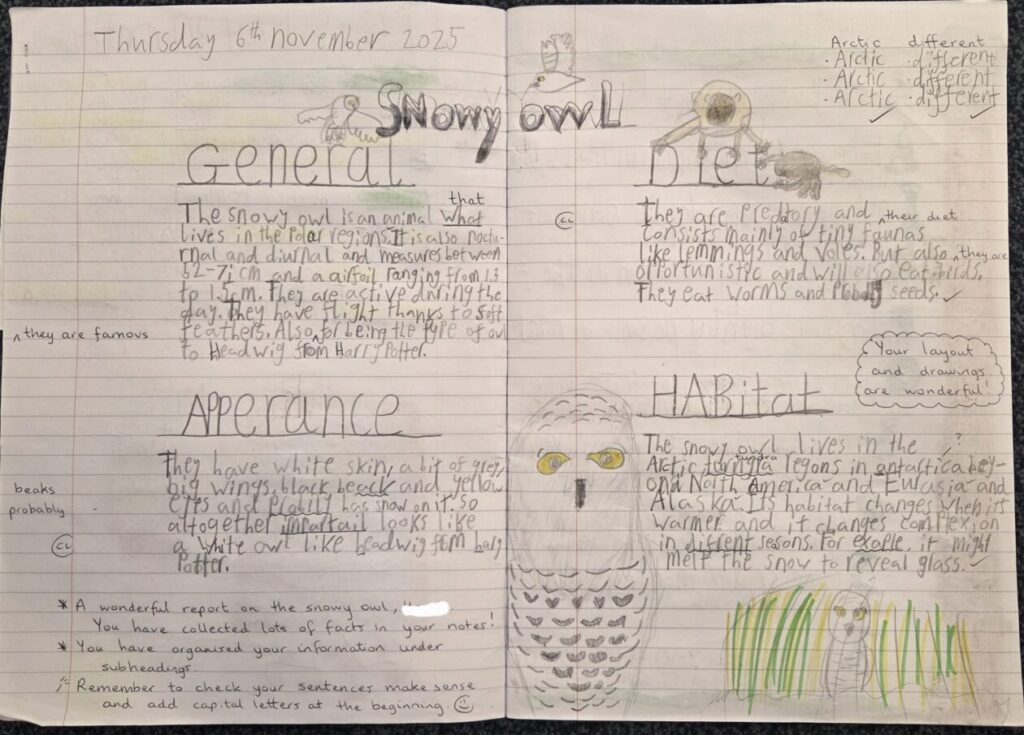 Thursday 6th november 2025
Snowy owl
General
The snowy owl is an animal what
that
lives in the polar regions. It is also noctu-
rnal and diurnal and measures between
52-71cm and a airfoil ranging from 1.3
to 1.5m. They are active during the
day. They have flight thanks to soft
feathers. Also, for being the type of owl
they are famous
to Headwig from Harry Potter.
Apperance
They have white skin, a bit of grey,
big wings, black beack and yellow
eyes and has snow on it. So
beaks
probably
altogether looks like
a white owl like headwig from hary
Potter.
CL
* A wonderful report on the snowy owl,
You have collected lots of facts in your notes!
* You have organised your information under
subheadings.
Remember to check your sentences make sense
and add capital letters at the beginning.
Arctic different
· Arctic · different
· Arctic · different
· Arctic · different
Diet
They are Predatory and their diet
CL
consists mainly of tiny faunas
like lemmings and voles. But also they are
opportunistic and will also eat birds.
They eat worms and seeds.
Your layout
and drawings
are wonderful!
HABitat
The snowy owl, lives in the
Arctic regons in antartica bey-
tundra
ond North America and Eurasia and
Alaska. Its habitat changes when its
warmer and it changes complexion
in sesons. For exaple, it might
melt the snow to reveal glass.